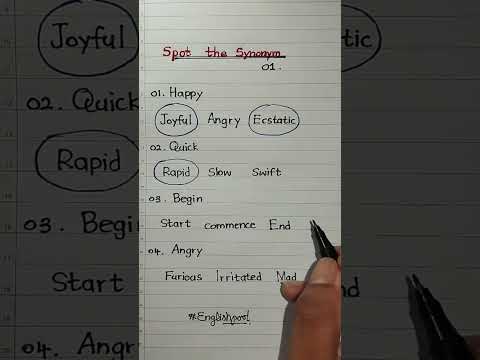 Spot the Synonym
01.
01. Happy
Joyful Angry Ecstatic
02. Quick
Rapid Slow Swift
03. Begin
Start commence End
04. Angry
Furious Irritated Mad
#Englishpool
Joyful
static
02. Quick
Rapid
03. Begin
Start
nd
04. Angry